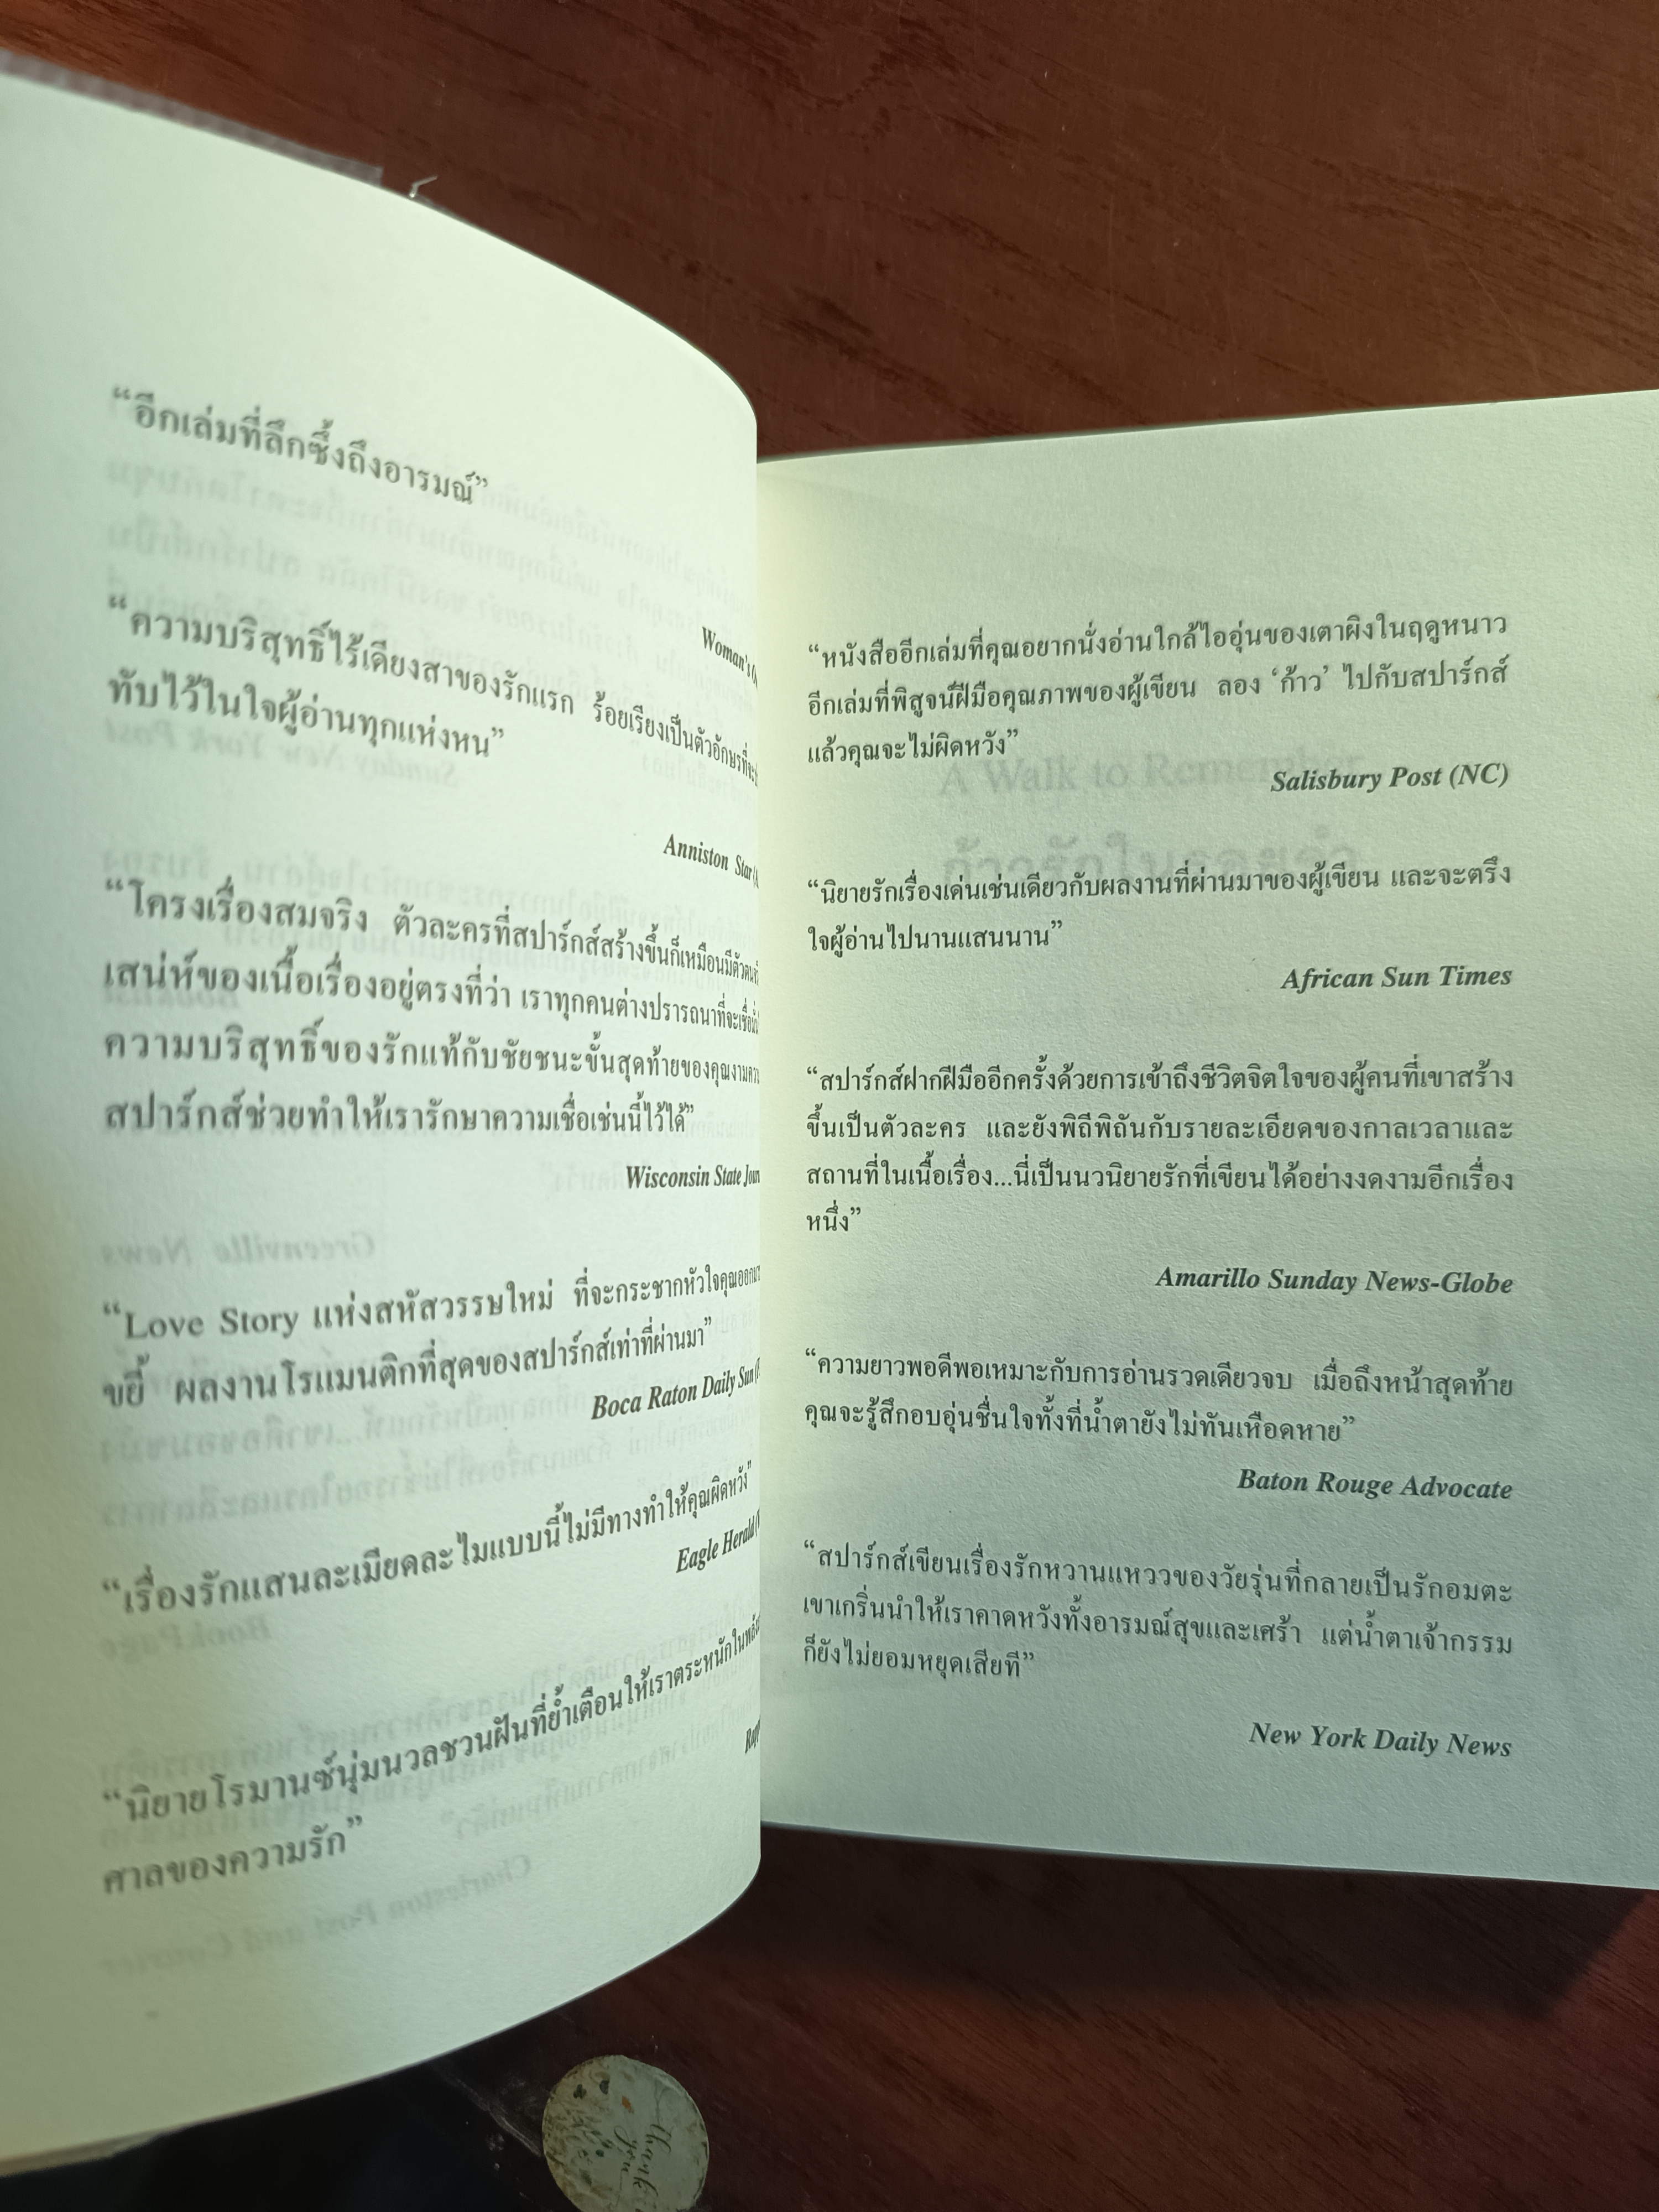 “อีกเล่มที่ลึกซึ้งถึงอารมณ์”
Woman's
“ความบริสุทธิ์ไร้เดียงสาของรักแรก ร้อยเรียงเป็นตัวอักษรที่จะ
ทับไว้ในใจผู้อ่านทุกแห่งหน”
Anniston Star
“โครงเรื่องสมจริง ตัวละครที่สปาร์กส์สร้างขึ้นก็เหมือนมีตัวตน
เสน่ห์ของเนื้อเรื่องอยู่ตรงที่ว่า เราทุกคนต่างปรารถนาที่จะเชื่อ
ความบริสุทธิ์ของรักแท้กับชัยชนะขั้นสุดท้ายของคุณงาม
สปาร์กส์ช่วยทำให้เรารักษาความเชื่อเช่นนี้ไว้ได้”
Wisconsin State
“Love Story แห่งสหัสวรรษใหม่ ที่จะกระชากหัวใจคุณออกมา
ขยี้ ผลงานโรแมนติกที่สุดของสปาร์กส์เท่าที่ผ่านมา”
Boca Raton Daily Sun
“เรื่องรักแสนละเมียดละไมแบบนี้ไม่มีทางทำให้คุณผิดหวัง”
Eagle Herald
“นิยายโรมานซ์นุ่มนวลชวนฝันที่ย้ำเตือนให้เราตระหนักใน
ศาลของความรัก”
“หนังสืออีกเล่มที่คุณอยากนั่งอ่านใกล้ไออุ่นของเตาผิงในฤดูหนาว
อีกเล่มที่พิสูจน์ฝีมือคุณภาพของผู้เขียน ลอง ‘ก้าว’ ไปกับสปาร์กส์
แล้วคุณจะไม่ผิดหวัง”
Salisbury Post (NC)
“นิยายรักเรื่องเด่นเช่นเดียวกับผลงานที่ผ่านมาของผู้เขียน และจะตรึง
ใจผู้อ่านไปนานแสนนาน”
African Sun Times
“สปาร์กส์ฝากฝีมืออีกครั้งด้วยการเข้าถึงชีวิตจิตใจของผู้คนที่เขาสร้าง
ขึ้นเป็นตัวละคร และยังพิถีพิถันกับรายละเอียดของกาลเวลาและ
สถานที่ในเนื้อเรื่อง...นี่เป็นนวนิยายรักที่เขียนได้อย่างงดงามอีกเรื่อง
หนึ่ง”
Amarillo Sunday News-Globe
“ความยาวพอดีพอเหมาะกับการอ่านรวดเดียวจบ เมื่อถึงหน้าสุดท้าย
คุณจะรู้สึกอบอุ่นชื่นใจทั้งที่น้ำตายังไม่ทันเหือดหาย”
Baton Rouge Advocate
“สปาร์กส์เขียนเรื่องรักหวานแหววของวัยรุ่นที่กลายเป็นรักอมตะ
เขาเกริ่นนำให้เราคาดหวังทั้งอารมณ์สุขและเศร้า แต่น้ำตาเจ้ากรรม
ก็ยังไม่ยอมหยุดเสียที”
New York Daily News
thank
you